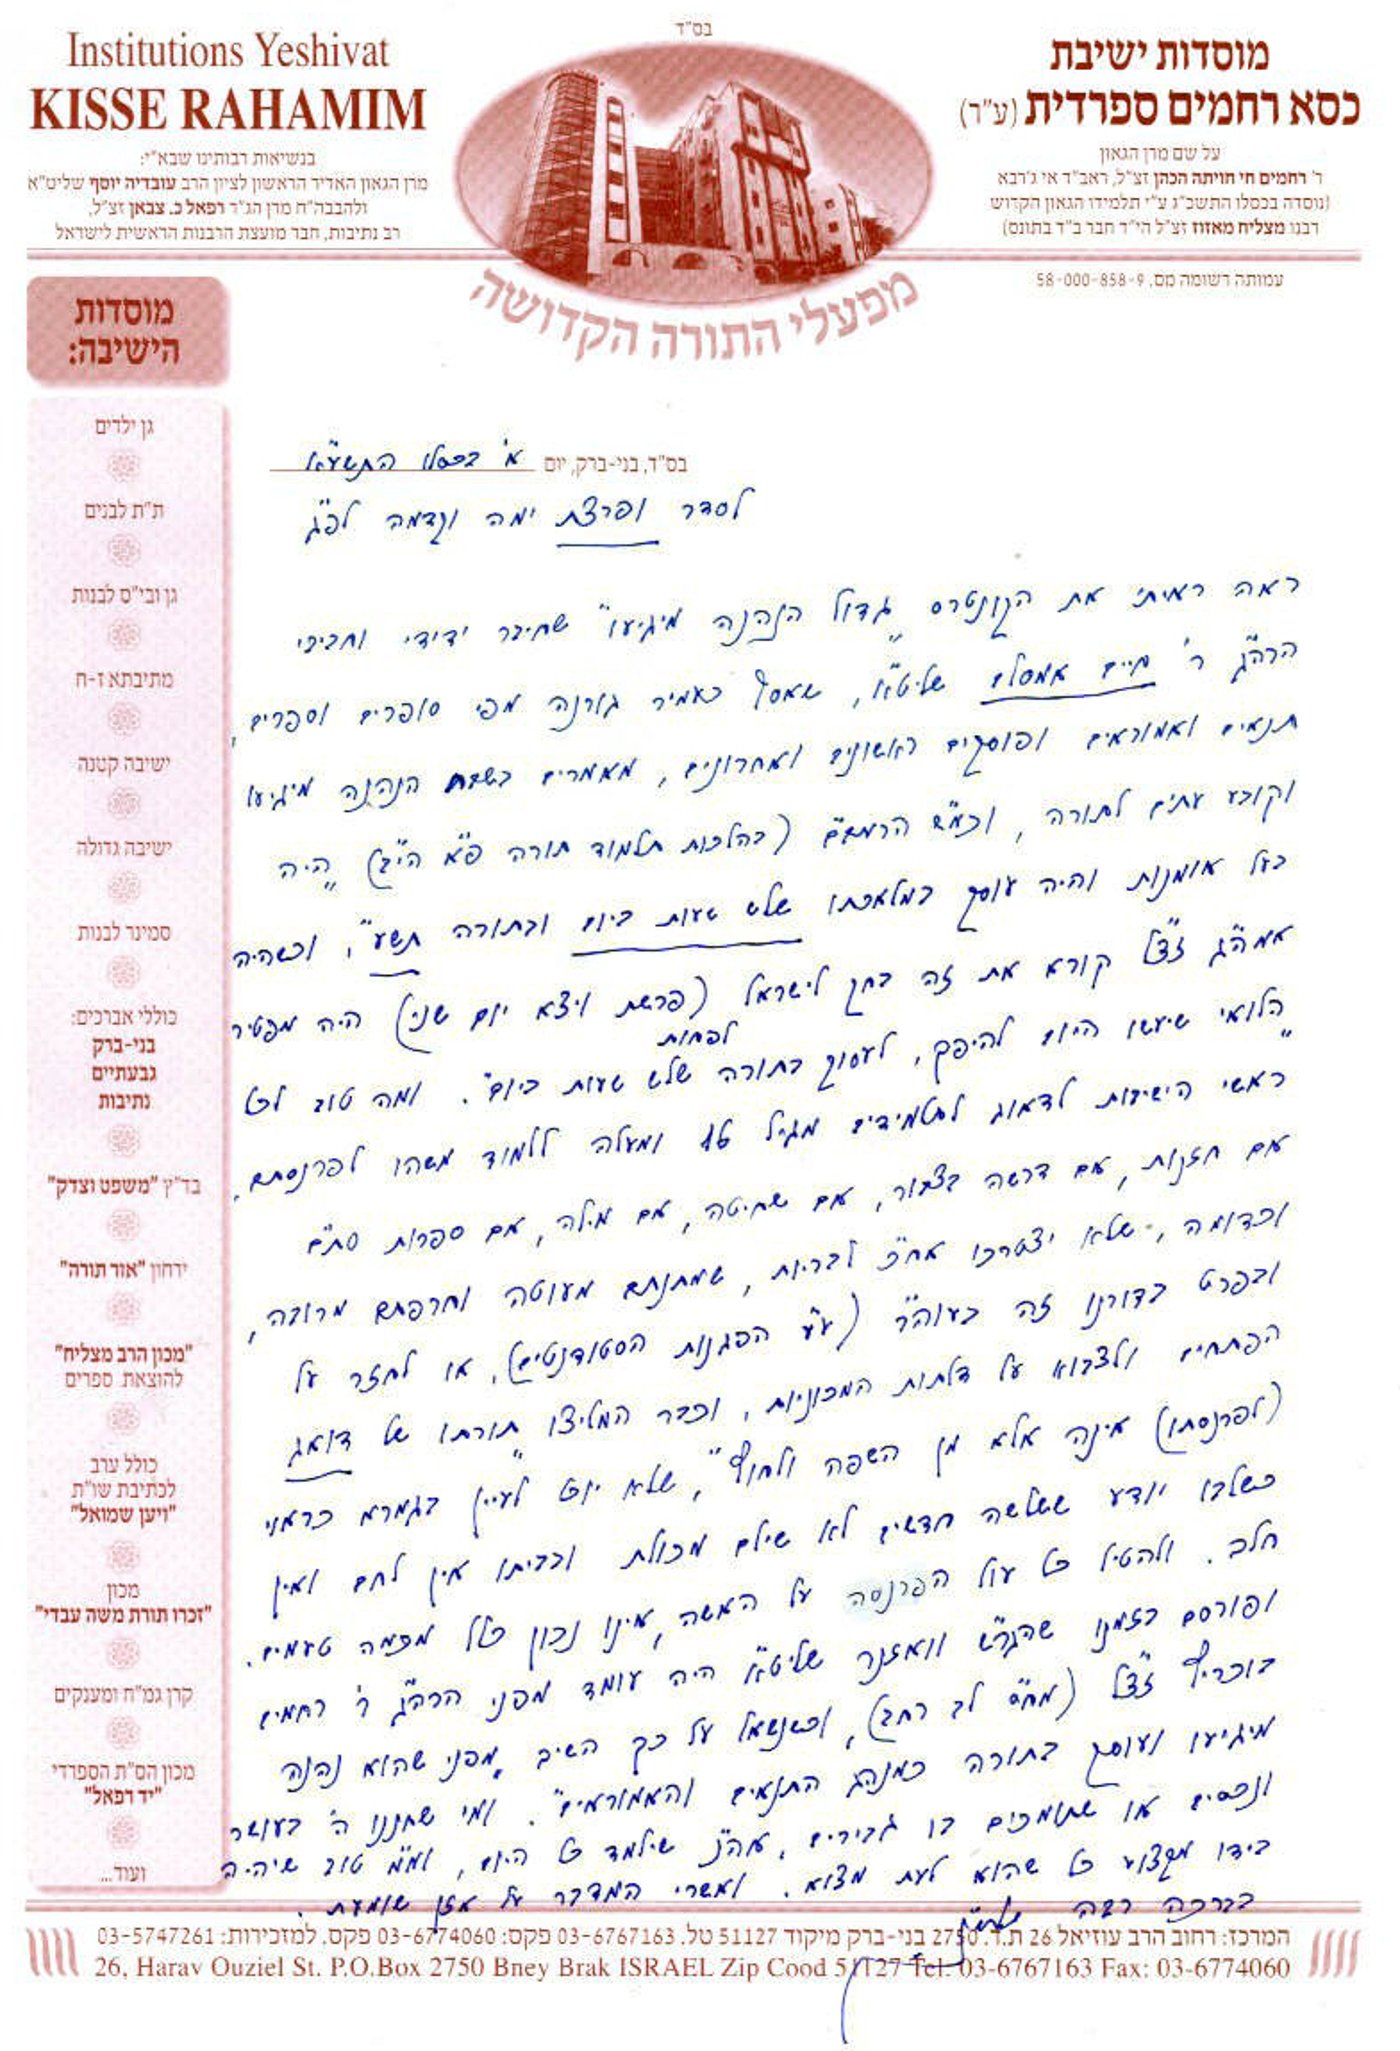 בס"ד
Institutions Yeshivat
KISSE RAHAMIM
בנשיאות רבותינו שבא"י:
מרן הגאון האדיר הראשון לציון הרב עובדיה יוסף שליט"א
ולהבבה"ח מרן הג"ר רפאל כ. צבאן זצ"ל,
רב נתיבות, חבר מועצת הרבנות הראשית לישראל
מוסדות ישיבת
כסא רחמים ספרדית (ע"ר)
על שם מרן הגאון
ר' רחמים חי חויתה הכהן זצ"ל, ראב"ד אי ג'רבא
(נוסדה בכסלו התשכ"ג ע"י תלמידו הגאון הקדוש
רבנו מצליח מאזוז זצ"ל הי"ד חבר ב"ד בתונס)
עמותה רשומה מס. 58-000-858-9
מפעלי התורה הקדושה
מוסדות
הישיבה:
גן ילדים
ת"ת לבנים
גן ובי"ס לבנות
מתיבתא ז-ח
ישיבה קטנה
ישיבה גדולה
סמינר לבנות
כוללי אברכים:
בני-ברק
גבעתיים
נתיבות
בד"ץ "משפט וצדק"
ירחון "אור תורה"
"מכון הרב מצליח"
להוצאת ספרים
כולל ערב
לכתיבת שו"ת
"ויען שמואל"
מכון
"זכרו תורת משה עבדי"
קרן גמ"ח ומענקים
מכון הס"ת הספרדי
"יד רפאל"
ועוד...
בס"ד, בני-ברק, יום א' בכסלו התשע"א
לסדר ופרצת ימה וקדמה לפ"ג
ראה ראיתי את הקונטרס "גדול הנהנה מיגיעו" שחיבר ידידי וחביבי
הרה"ג ר' חיים אמסלם שליט"א, שאסף כעמיר גורנה מפי סופרים וספרים,
תנאים ואמוראים ופוסקים ראשונים ואחרונים, מאמרים בשבח הנהנה מיגיעו
וקובע עתים לתורה, וכמ"ש הרמב"ם (בהלכות תלמוד תורה פ"א הי"ב) "היה
בעל אומנות והיה עוסק במלאכתו שלש שעות ביום ובתורה תשע", וכשהיה
אמה"ג זצ"ל קורא את זה בחק לישראל (פרשת ויצא יום שני) היה מפטיר
"הלואי שיעשו היום להיפך, לעסוק בתורה לפחות שלש שעות ביום". ומה טוב לכל
ראשי הישיבות לדאוג לתלמידים מגיל 16 ומעלה ללמוד משהו לפרנסתם,
אם חזנות, אם דרשה בצבור, אם שחיטה, אם מילה, אם ספרות סת"ם
וכדומה, שלא יצטרכו אח"כ לבריות, שמתנתם מעוטה וחרפתם מרובה,
ובפרט בדורנו זה בעוה"ר (ע"ע הפגנות הסטודנטים), או לחזר על
הפתחים ולצבוא על דלתות המכוניות, וכבר המליצו "תורתו של דואג
(לפרנסתו) אינה אלא מן השפה ולחוץ", שלא יוכל לעיין בגמרא כראוי
כשלבו יודע ששלשה חדשים לא שילם מכולת ובביתו אין לחם ואין
חלב. ולהטיל כל עול הפרנסה על האשה, אינו נכון כלל מכמה טעמים.
ופורסם בזמנו שהגר"ש וואזנר שליט"א היה עומד מפני הרה"ג ר' רחמים
בוכריץ זצ"ל (מח"ס לב רחב), וכשנשאל על כך השיב "מפני שהוא נהנה
מיגיעו ועוסק בתורה כמנהג התנאים והאמוראים". ומי שחננו ה' בעושר
ונכסים או שתומכים בו גבירים, אה"נ שילמד כל היום, ומ"מ טוב שיהיה
בידו מקצוע כל שהוא לעת מצוא. ואשרי המדבר על אזן שומעת.
בברכה רבה
המרכז: רחוב הרב עוזיאל 26 ת.ד. 2750 בני-ברק מיקוד 51127 טל. 03-6767163 פקס: 03-6774060 פקס. למזכירות: 03-5747261
26, Harav Ouziel St. P.O.Box 2750 Bney Brak ISRAEL Zip Cood 51127 Tel: 03-6767163 Fax: 03-6774060